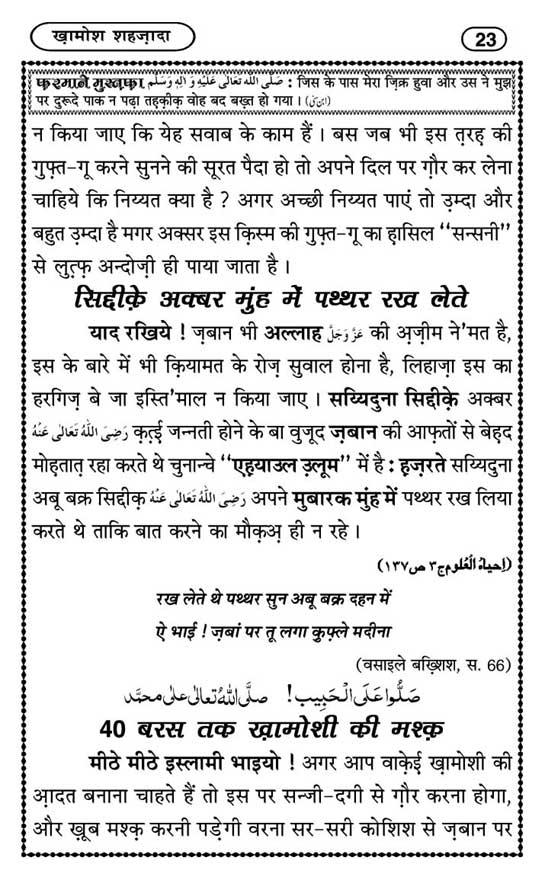 ख़ामोश शहज़ादा
23
फ़रमाने मुस्तफ़ा صَلَّى اللّٰهُ تَعَالٰى عَلَيْهِ وَاٰلِهٖ وَسَلَّم : जिस के पास मेरा ज़िक्र हुवा और उस ने मुझ
पर दुरूदे पाक न पढ़ा तहक़ीक़ वोह बद बख़्त हो गया । (ابن سنی)
न किया जाए कि येह सवाब के काम हैं । बस जब भी इस त़रह़ की
गुफ़्त-गू करने सुनने की सूरत पैदा हो तो अपने दिल पर ग़ौर कर लेना
चाहिये कि निय्यत क्या है ? अगर अच्छी निय्यत पाएं तो उ़म्दा और
बहुत उ़म्दा है मगर अक्सर इस क़िस्म की गुफ़्त-गू का ह़ासिल ‘‘सन्सनी’’
से लुत़्फ़ अन्दोज़ी ही पाया जाता है ।
सिद्दीक़े अक्बर मुंह में पथ्थर रख लेते
याद रखिये ! ज़बान भी अल्लाह عَزَّوَجَلَّ की अ़ज़ीम ने’मत है,
इस के बारे में भी क़ियामत के रोज़ सुवाल होना है, लिहाज़ा इस का
हरगिज़ बे जा इस्ति’माल न किया जाए । सय्यिदुना सिद्दीक़े अक्बर
رَضِیَ اللّٰهُ تَعَالٰی عَنْهُ क़त़ई जन्नती होने के बा वुजूद ज़बान की आफ़तों से बेह़द
मोह़तात़ रहा करते थे चुनान्चे ‘‘एह़याउल उ़लूम’’ में है : ह़ज़रते सय्यिदुना
अबू बक्र सिद्दीक़ رَضِیَ اللّٰهُ تَعَالٰی عَنْهُ अपने मुबारक मुंह में पथ्थर रख लिया
करते थे ताकि बात करने का मौक़अ़ ही न रहे ।
(اِحیاءُ الْعُلوم ج۳ ص۱۳۷)
रख लेते थे पथ्थर सुन अबू बक्र दहन में
ऐ भाई ! ज़बां पर तू लगा क़ुफ़्ले मदीना
(वसाइले बख़्शिश, स. 66)
صَلُّوا عَلَى الْحَبِيب ! صلَّى اللّٰهُ تعالٰى علٰى محمَّد
40 बरस तक ख़ामोशी की मश्क़
मीठे मीठे इस्लामी भाइयो ! अगर आप वाक़ेई ख़ामोशी की
आ़दत बनाना चाहते हैं तो इस पर सन्जी-दगी से ग़ौर करना होगा,
और ख़ूब मश्क़ करनी पड़ेगी वरना सर-सरी कोशिश से ज़बान पर